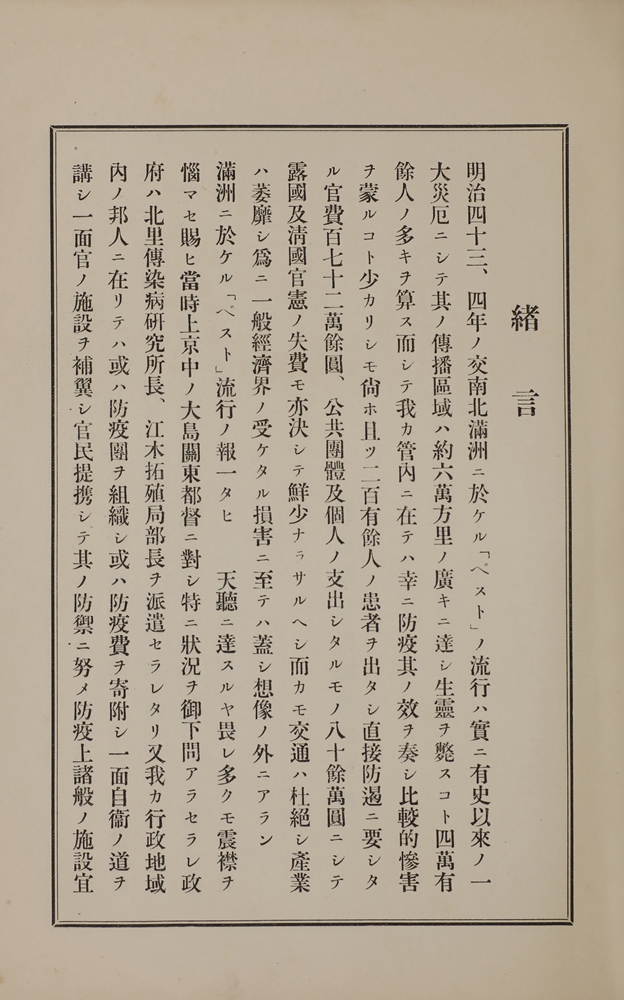 緒言
明治四十三、四年ノ交南北滿洲ニ於ケル「ペスト」ノ流行ハ實ニ有史以來ノ一
大災厄ニシテ其ノ傳播區域ハ約六萬方里ノ廣キニ達シ生靈ヲ斃スコト四萬有
餘人ノ多キヲ算ス而シテ我カ管內ニ在テハ幸ニ防疫其ノ效ヲ奏シ比較的慘害
ヲ蒙ルコト少カリシモ尙ホ且ツ二百有餘人ノ患者ヲ出タシ直接防遏ニ要シタ
ル官費百七十二萬餘圓、公共團體及個人ノ支出シタルモノ八十餘萬圓ニシテ
露國及淸國官憲ノ失費モ亦決シテ鮮少ナラサルヘシ而カモ交通ハ杜絕シ產業
ハ萎靡シ爲ニ一般經濟界ノ受ケタル損害ニ至テハ蓋シ想像ノ外ニアラン
滿洲ニ於ケル「ペスト」流行ノ報一タヒ　天聽ニ達スルヤ畏レ多クモ震襟ヲ
惱マセ賜ヒ當時上京中ノ大島關東都督ニ對シ特ニ狀況ヲ御下問アラセラレ政
府ハ北里傳染病硏究所長、江木拓殖局部長ヲ派遣セラレタリ又我カ行政地域
內ノ邦人ニ在リテハ或ハ防疫團ヲ組織シ或ハ防疫費ヲ寄附シ一面自衞ノ道ヲ
講シ一面官ノ施設ヲ補翼シ官民提携シテ其ノ防禦ニ努メ防疫上諸般ノ施設宜